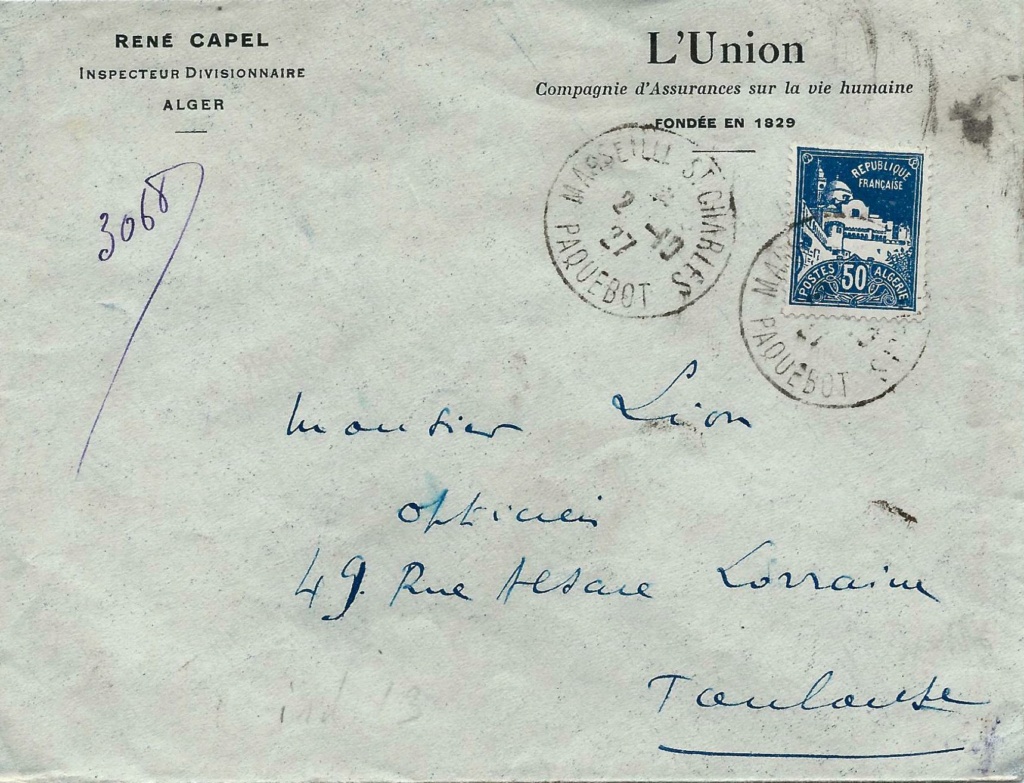 RENÉ CAPEL
INSPECTEUR DIVISIONNAIRE
ALGER
L'Union
Compagnie d'Assurances sur la vie humaine
FONDÉE EN 1829
3068
MARSEILLE ST CHARLES
2 -10
27
PAQUEBOT
REPUBLIQUE
FRANÇAISE
POSTES 50 ALGERIE
PAQUEBOT
Monsieur Lion
opticien
49. Rue Alsace Lorraine
Toulouse